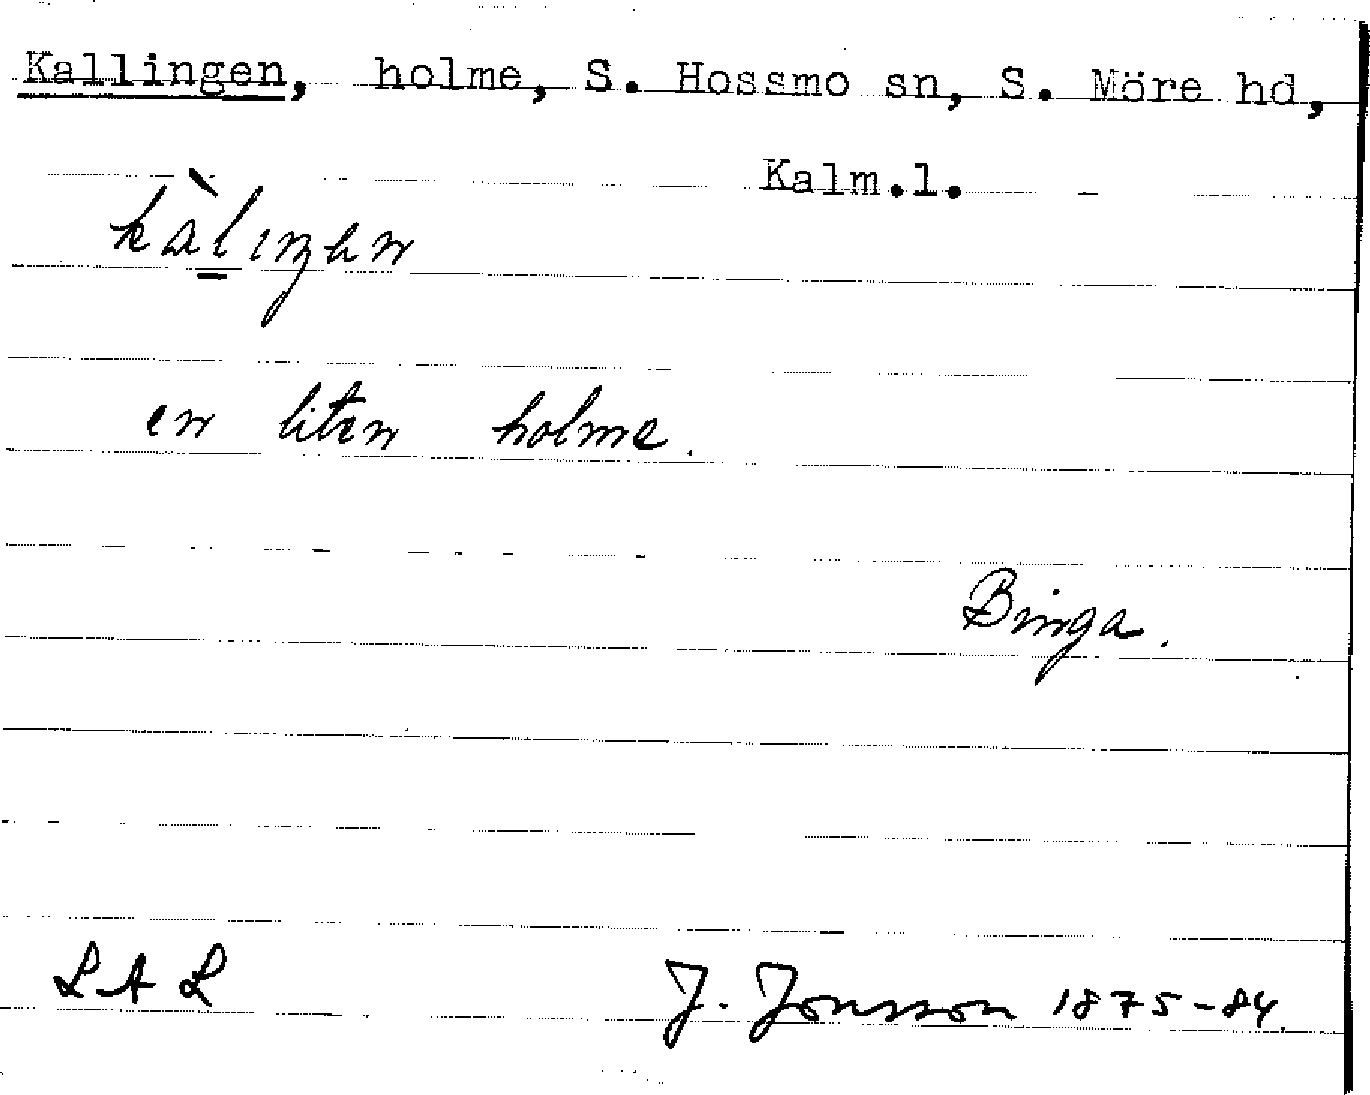 Kallingen, holme, S. Hossmo sn, S. Möre hd,
Kalm.l.
en liten holme.
Binga.
LAL
J. Jonsson 1875-84.